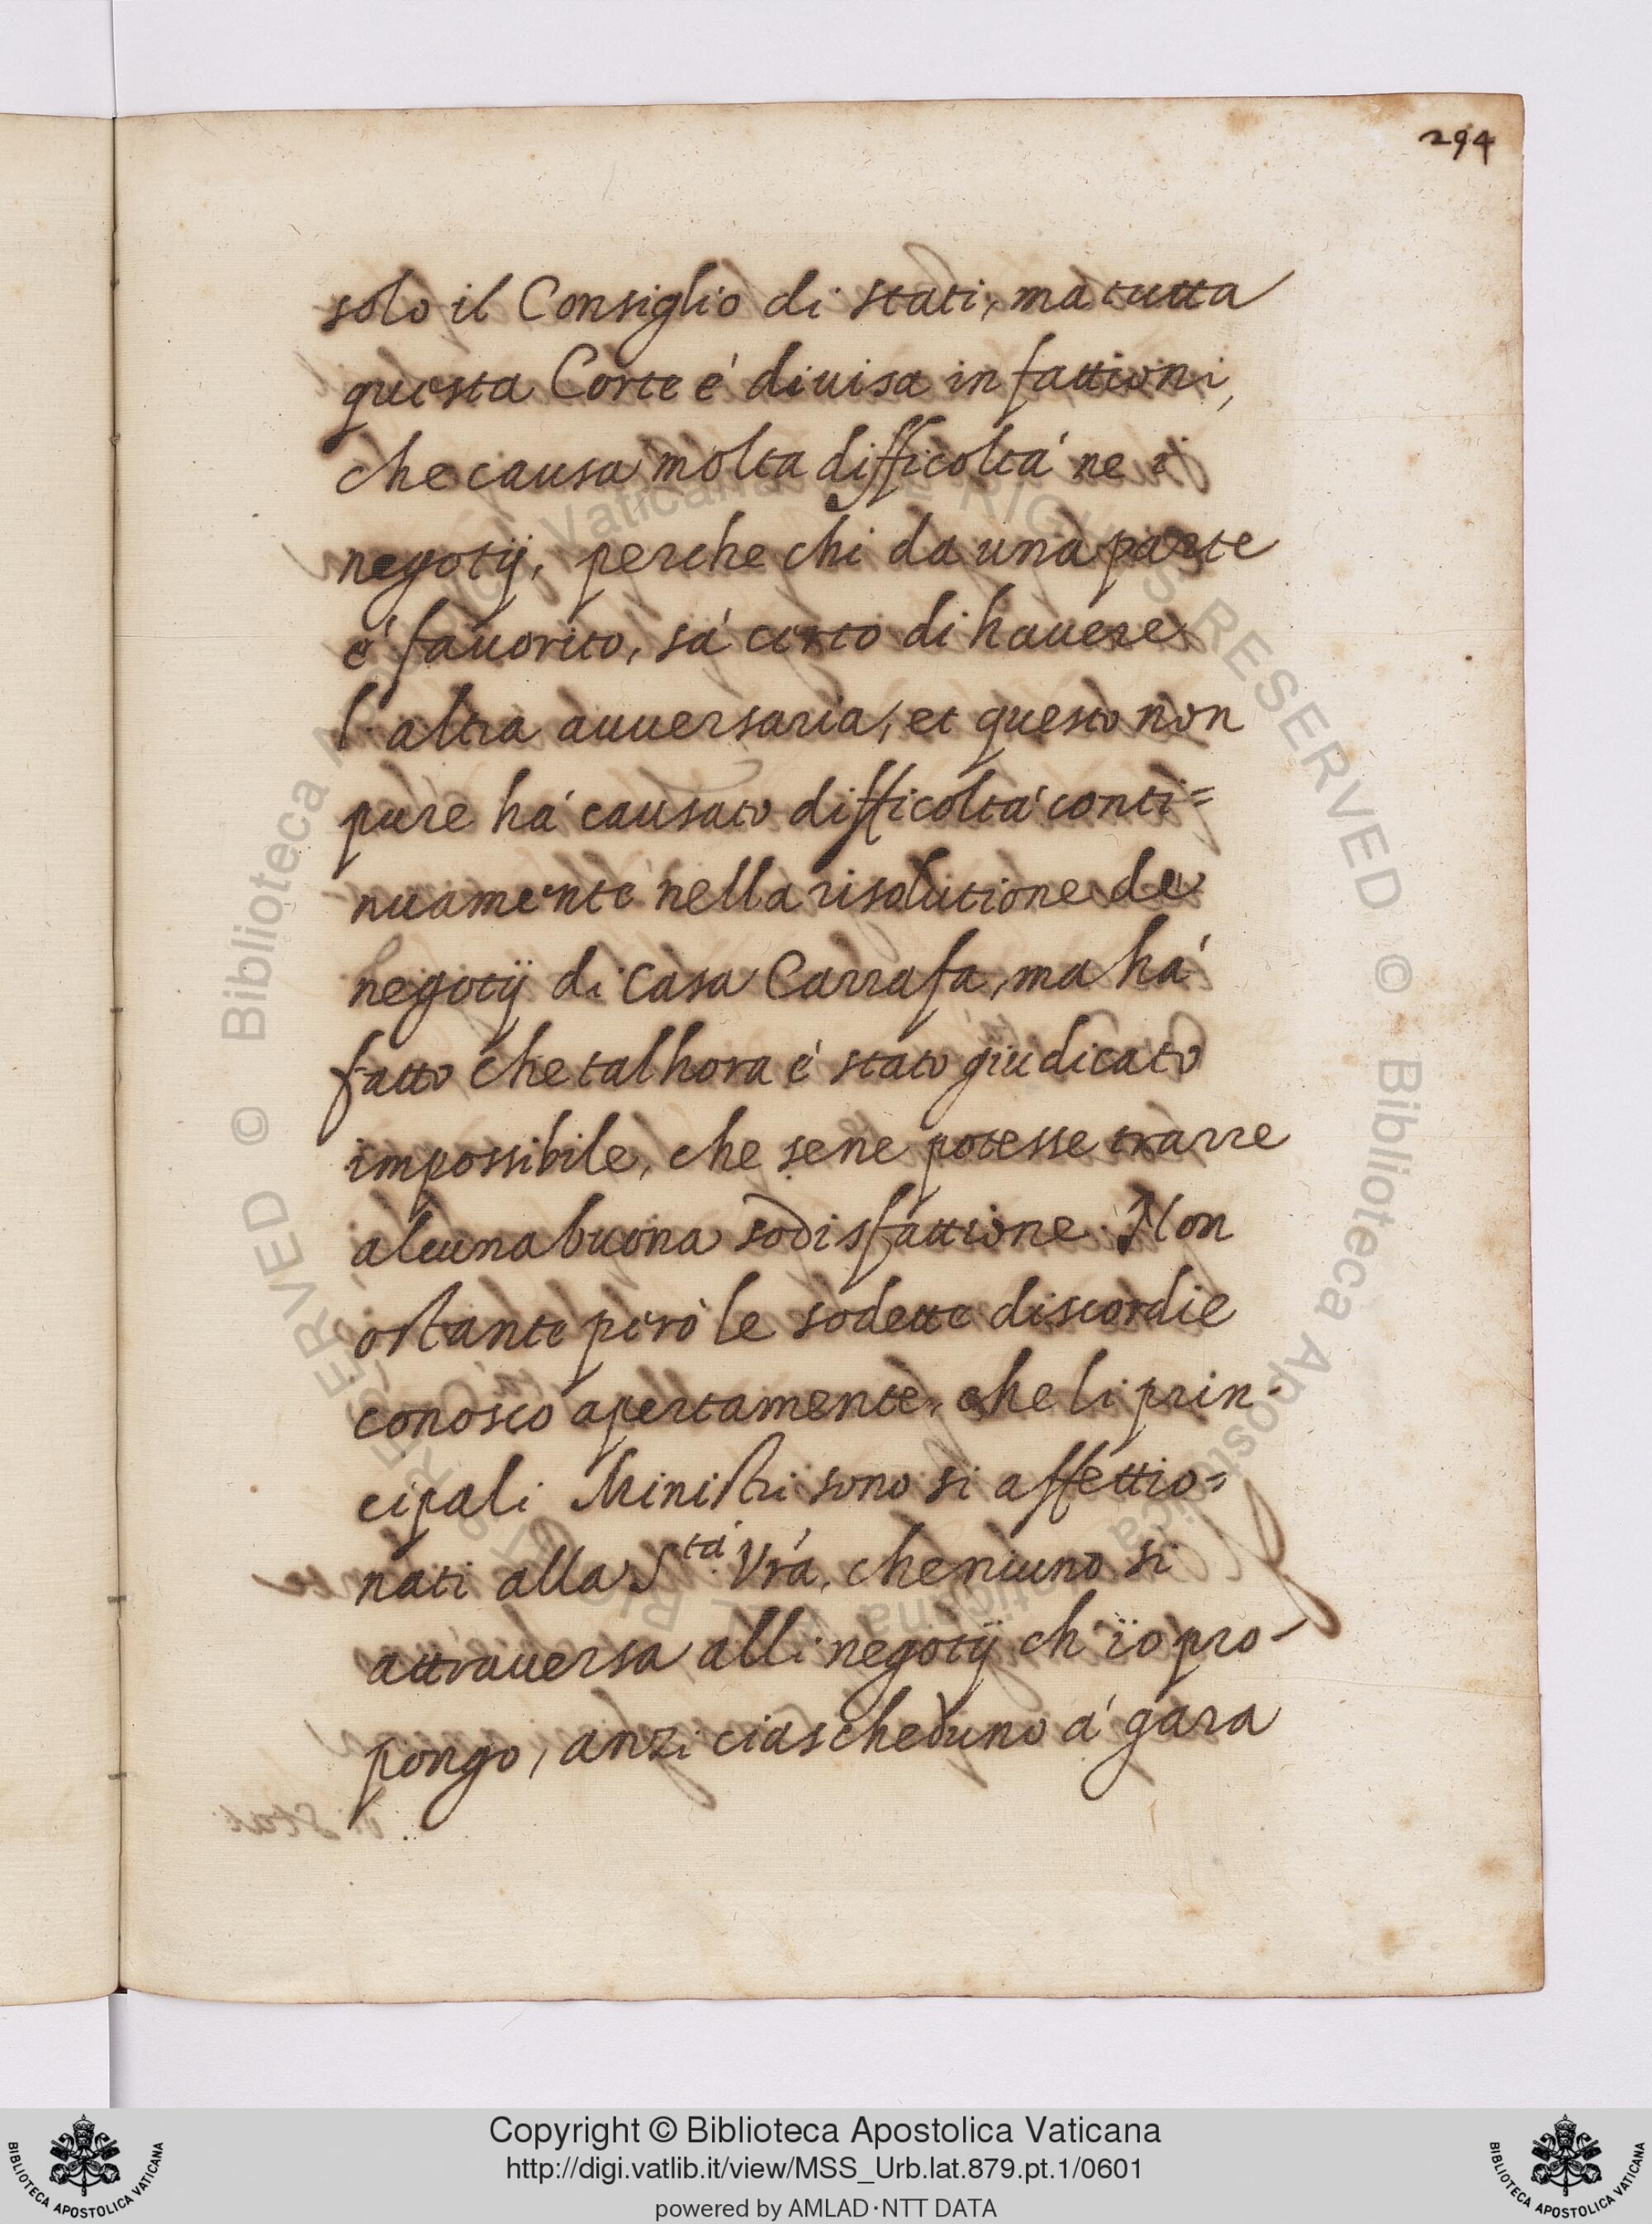 294
solo il Consiglio di stati, ma tutta
questa Corte é diuisa in fattioni,
che causa molta difficoltá ne i
negotij, perche chi da una parte
é fauorito, sá certo di hauere
l'altra auuersaria, et questo non
pure há causato difficoltá conti=
nuamente nella risolutione de
negotij di casa Carrafa, ma há
fatto che talhora é stato giudicato
impossibile, che sene potesse trarre
alcuna buona sodisfattione. Non
ostante peró le sodette discordie
conosco apertamente, che li prin-
cipali Ministri sono si affettio=
nati alla S.tá Vrá, che niuno si
attrauersa alli negotij ch'io pro-
pongo, anzi ciascheduno á gara
Copyright © Biblioteca Apostolica Vaticana
http://digi.vatlib.it/view/MSS_Urb.lat.879.pt.1/0601
powered by AMLAD·NTT DATA
BIBLIOTECA APOSTOLICA VATICANA
BIBLIOTECA APOSTOLICA VATICANA